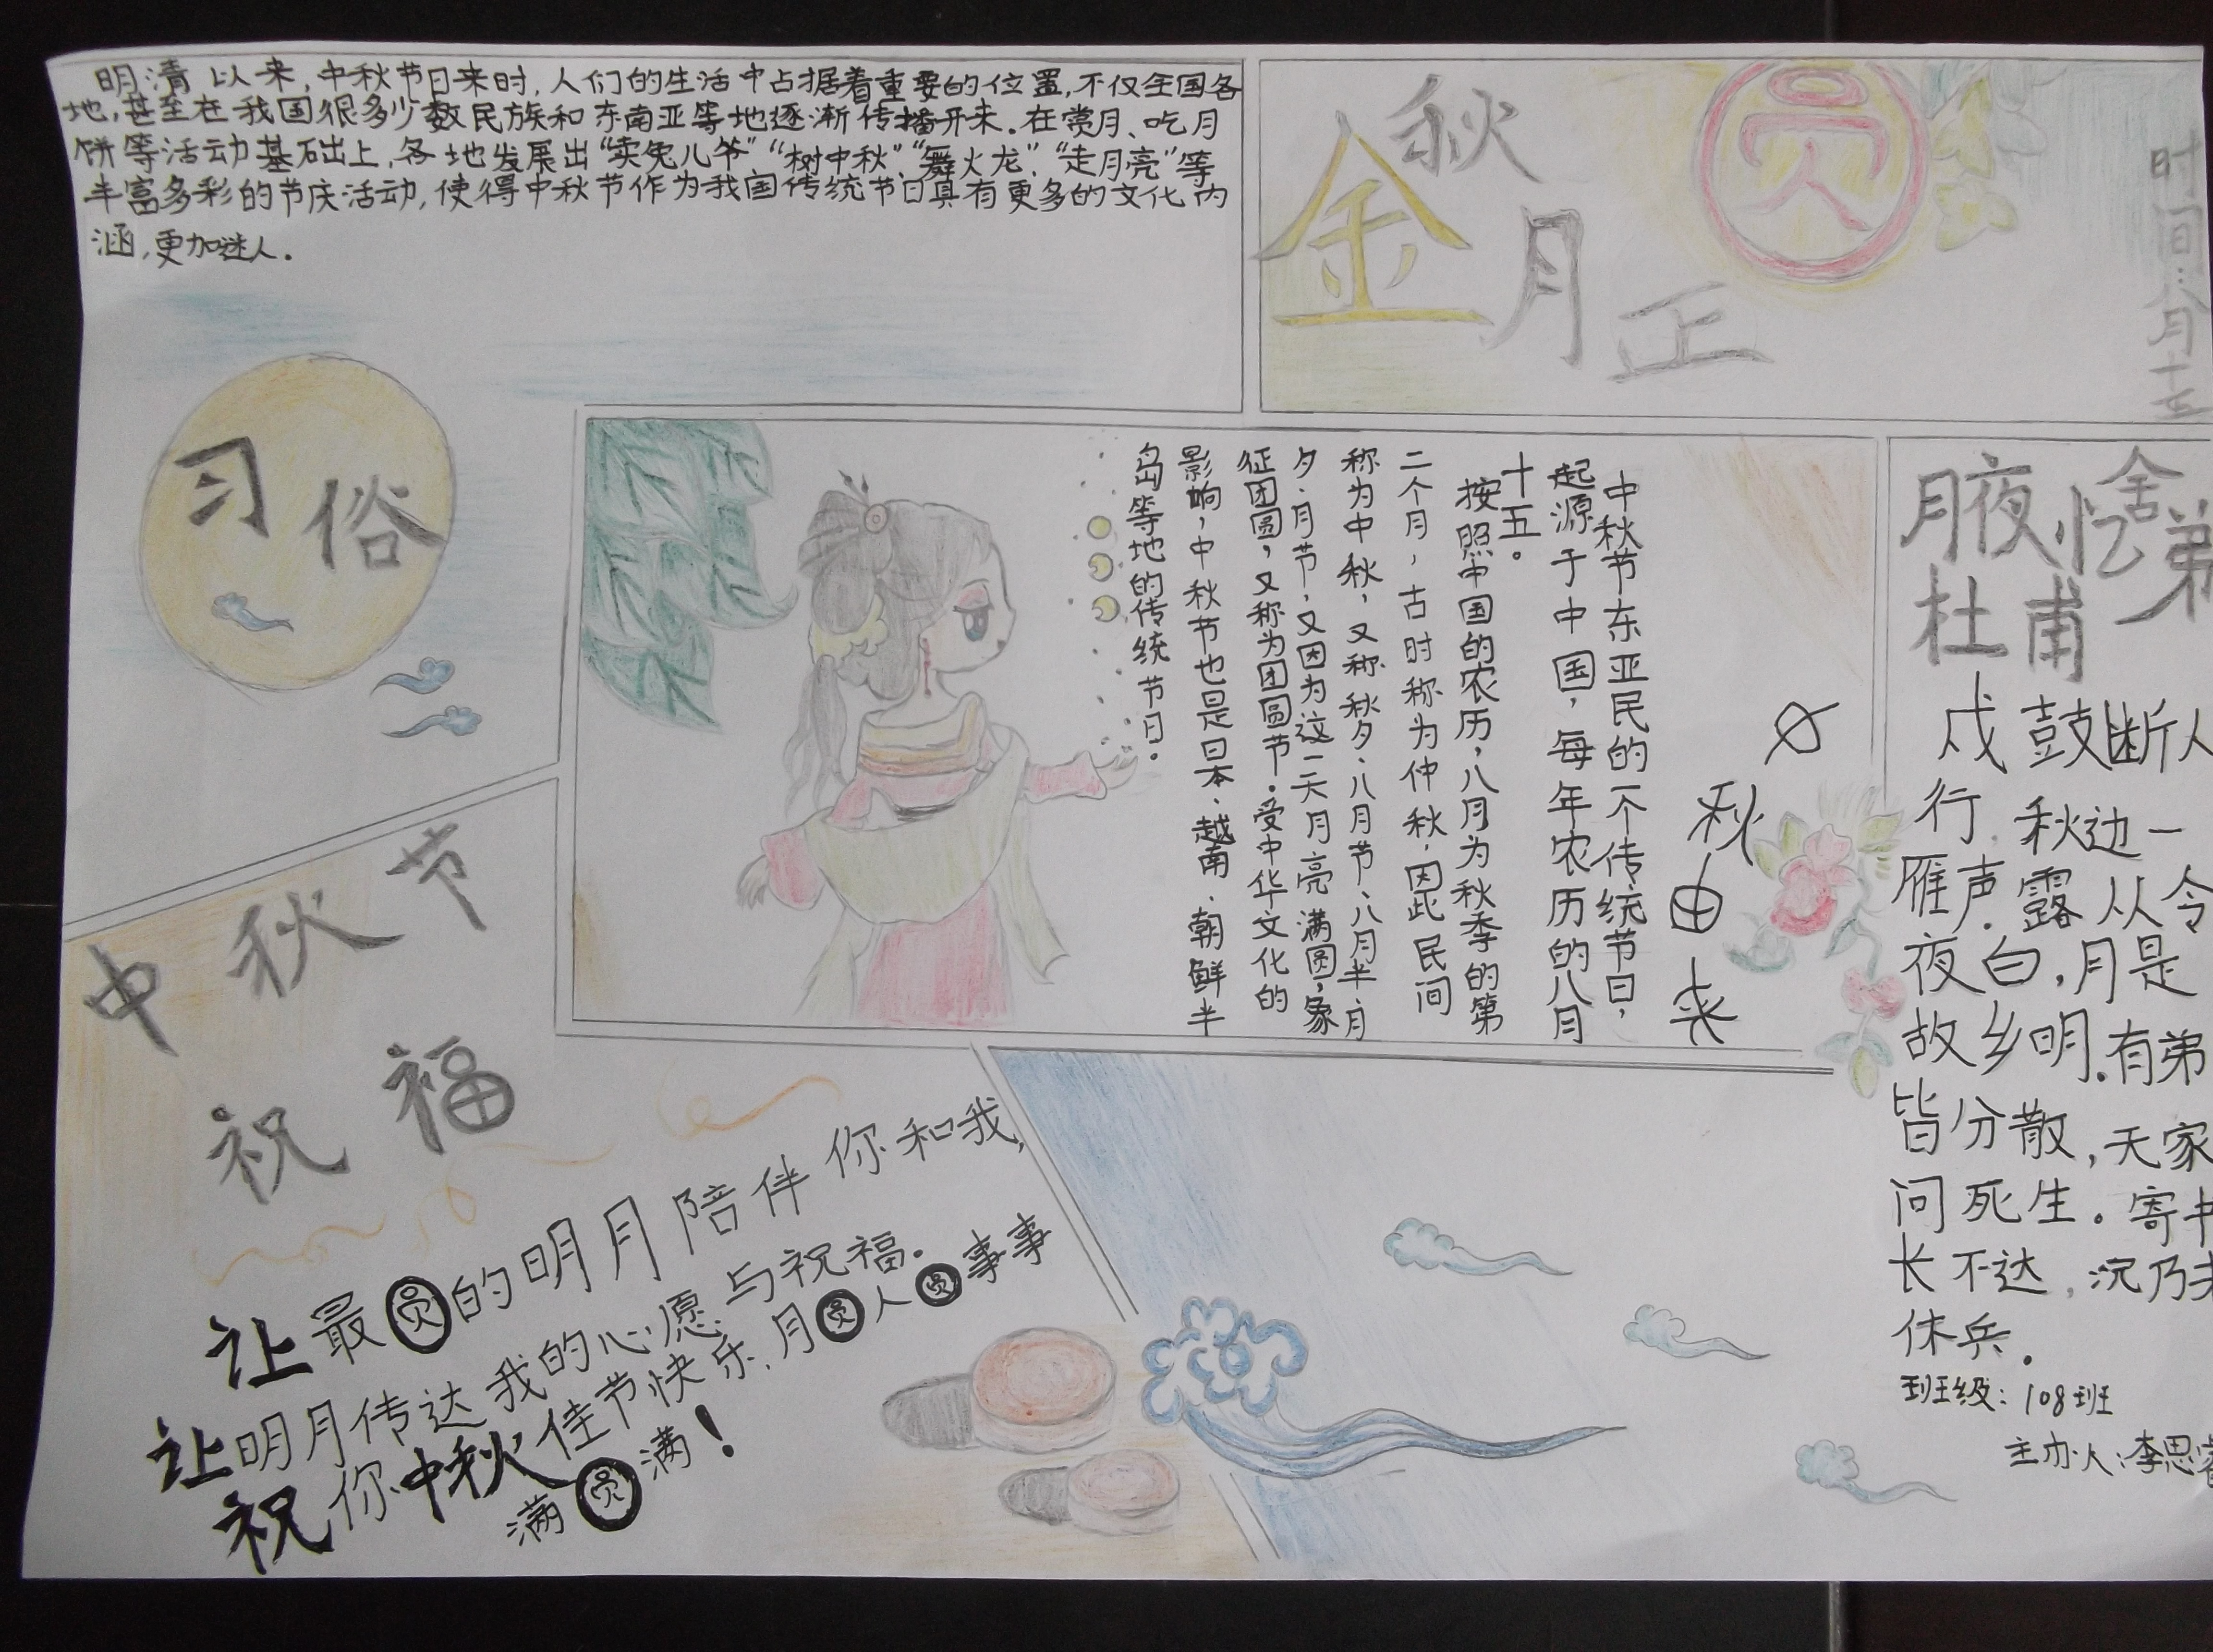 明清以来,中秋节日来时,人们的生活中占据着重要的位置,不仅全国各
地,甚至在我国很多少数民族和东南亚等地逐渐传播开来.在赏月、吃月
饼等活动基础上,各地发展出“卖兔儿爷”“树中秋”“舞火龙”“走月亮”等
丰富多彩的节庆活动,使得中秋节作为我国传统节日具有更多的文化内
涵,更加迷人.
习俗
金秋月正圆
时间:八月十五
中秋由来
中秋节东亚民的一个传统节日,
起源于中国,每年农历的八月
十五。
按照中国的农历,八月为秋季的第
二个月,古时称为仲秋,因此民间
称为中秋,又称秋夕、八月节、八月半、月
夕、月节,又因为这一天月亮满圆,象
征团圆,又称为团圆节.受中华文化的
影响,中秋节也是日本、越南、朝鲜半
岛等地的传统节日.
月夜忆舍弟
杜甫
戍鼓断人
行,秋边一
雁声.露从今
夜白,月是
故乡明.有弟
皆分散,无家
问死生.寄书
长不达,况乃未
休兵.
班级:108班
主办人:李思
中秋节
祝福
让最圆的明月陪伴你和我,
让明月传达我的心愿与祝福.
祝你中秋佳节快乐,月圆人圆事事
满圆满!